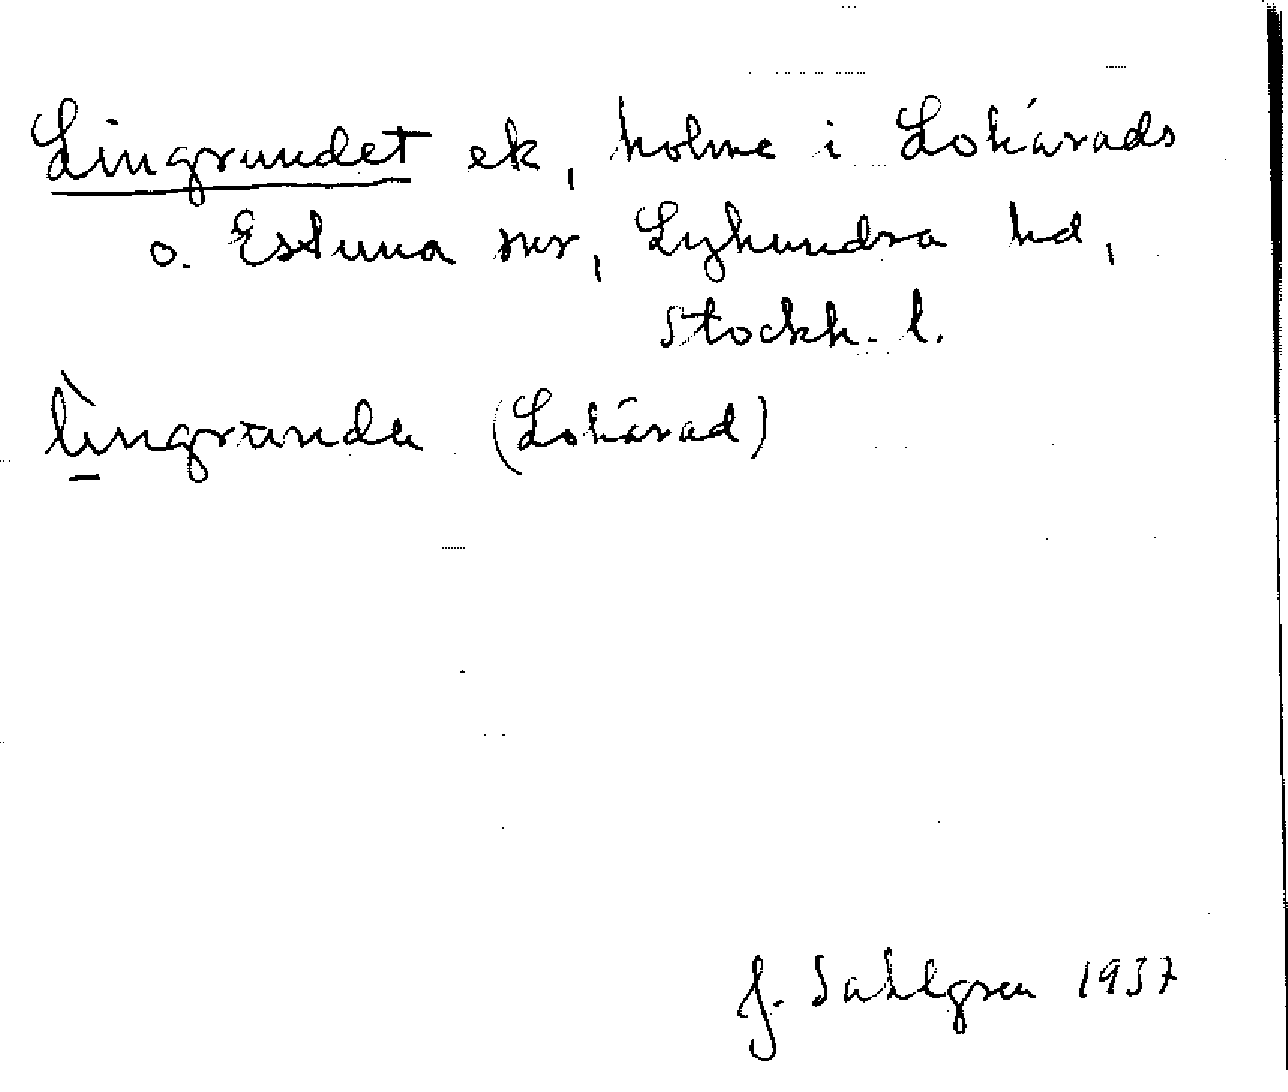 Lingrundet ek, holme i Lohärads
o. Estuna snr, Lyhundra hd,
Stockh. l.
lìngrunda (Lohärad)
J. Sahlgren 1937